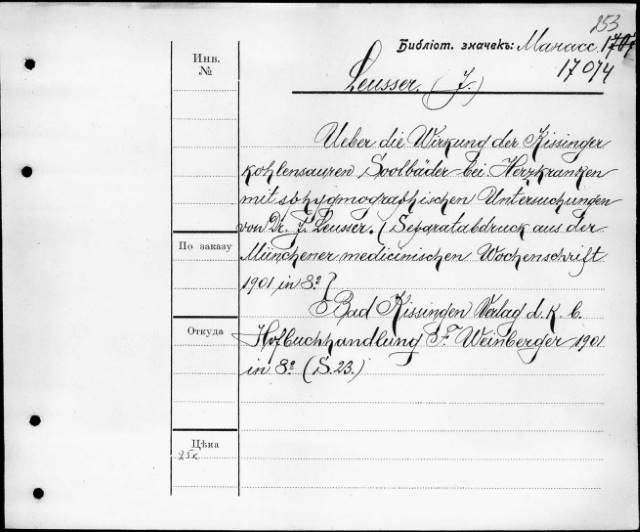 253
Библіот. значекъ: Манасс. 1707
17074
Инв.
№
Leusser. (J.)
Ueber die Wirkung der Kissinger
kohlensauren Soolbäder bei Herzkranken
mit sphygmographischen Untersuchungen
von Dr. J. Leusser. (Separatabdruck aus der
По заказу
Münchener medicinischen Wochenschrift
1901 in 8º)
Bad Kissingen Verlag d. K. b.
Откуда
Hofbuchhandlung F. Weinberger 1901
in 8º (S. 23.)
Цѣна
25к